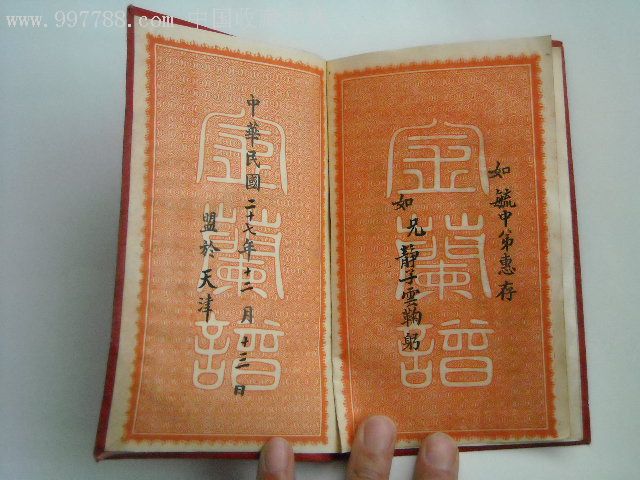 www.997788.com 中国收藏
如毓中弟惠存
如兄靜子雲鞠躬
金蘭譜
中華民國二十七年十二月十三日
盟於天津
金蘭譜